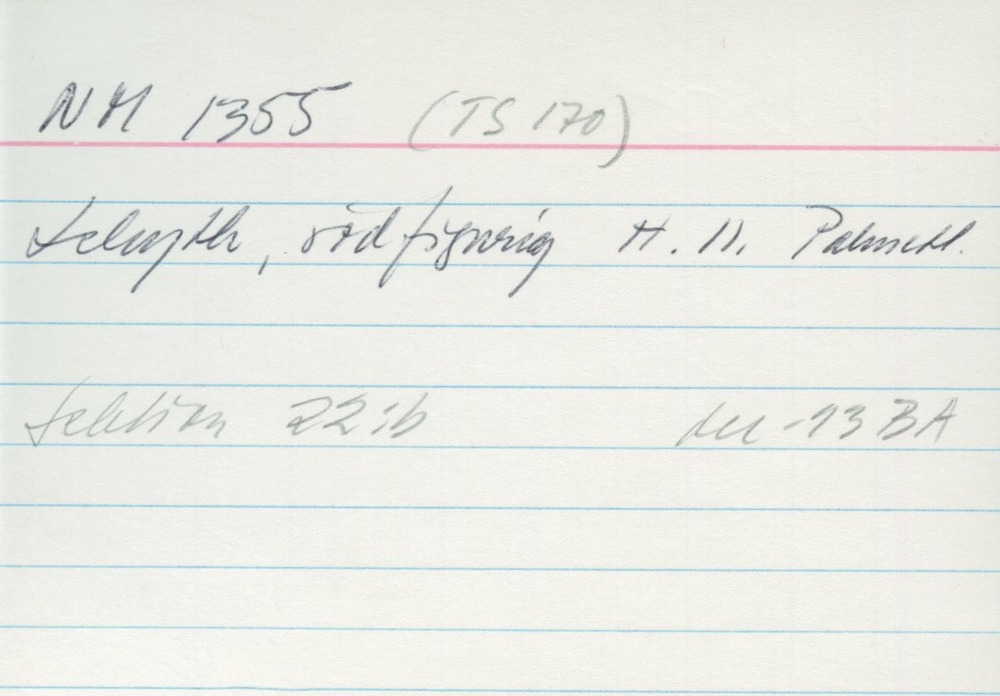 NM 1355 (TS 170)
Lekyth, rödfigurig H. 11. Palmett.
Sektion 22:b -93 BA